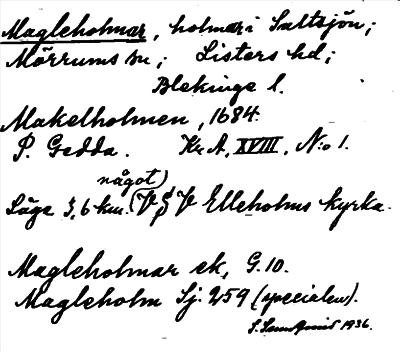 Magleholmar, holmar i Saltsjön;
Mörrums sn; Listers hd;
Blekinge l.
Makelholmen, 1684.
P. Gedda. Kr A, XVIII, N:o 1.
något)
Läge 3,6 km. (V § V Elleholms kyrka.
Magleholmar ek, G. 10.
Magleholm Sj. 259 (specialen).
1936.